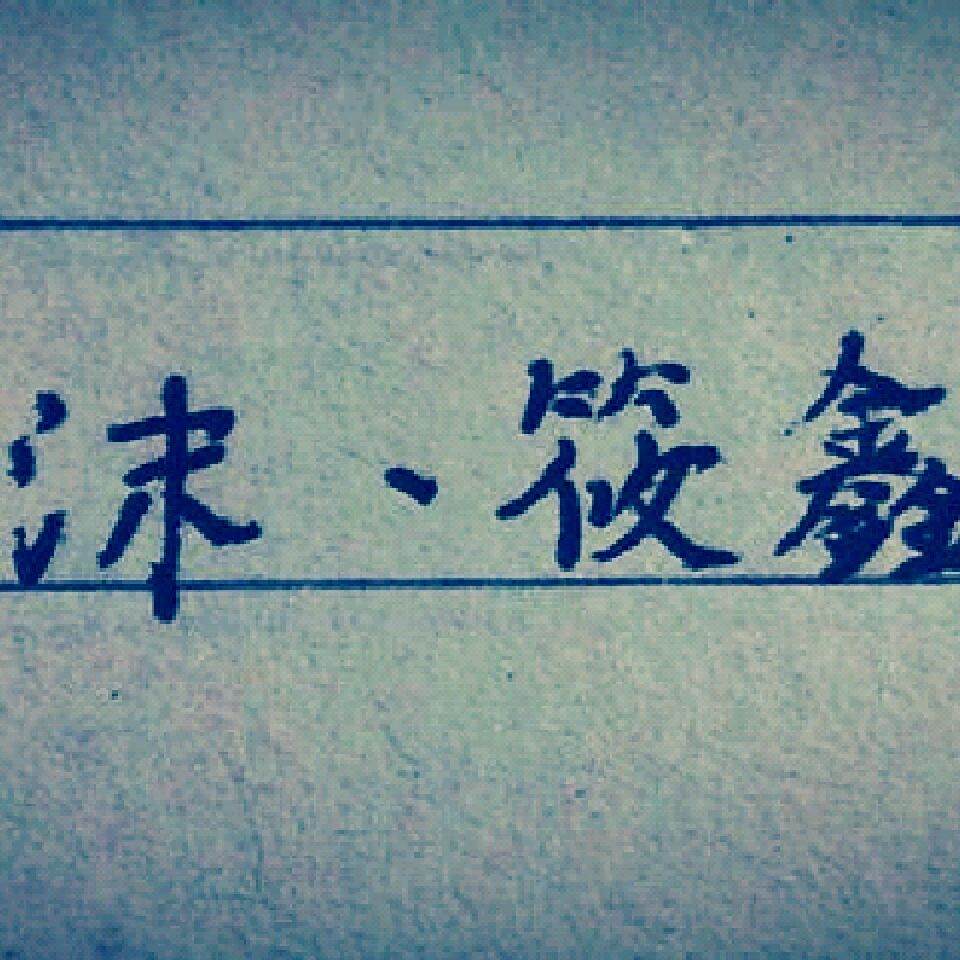 沫、筱鑫